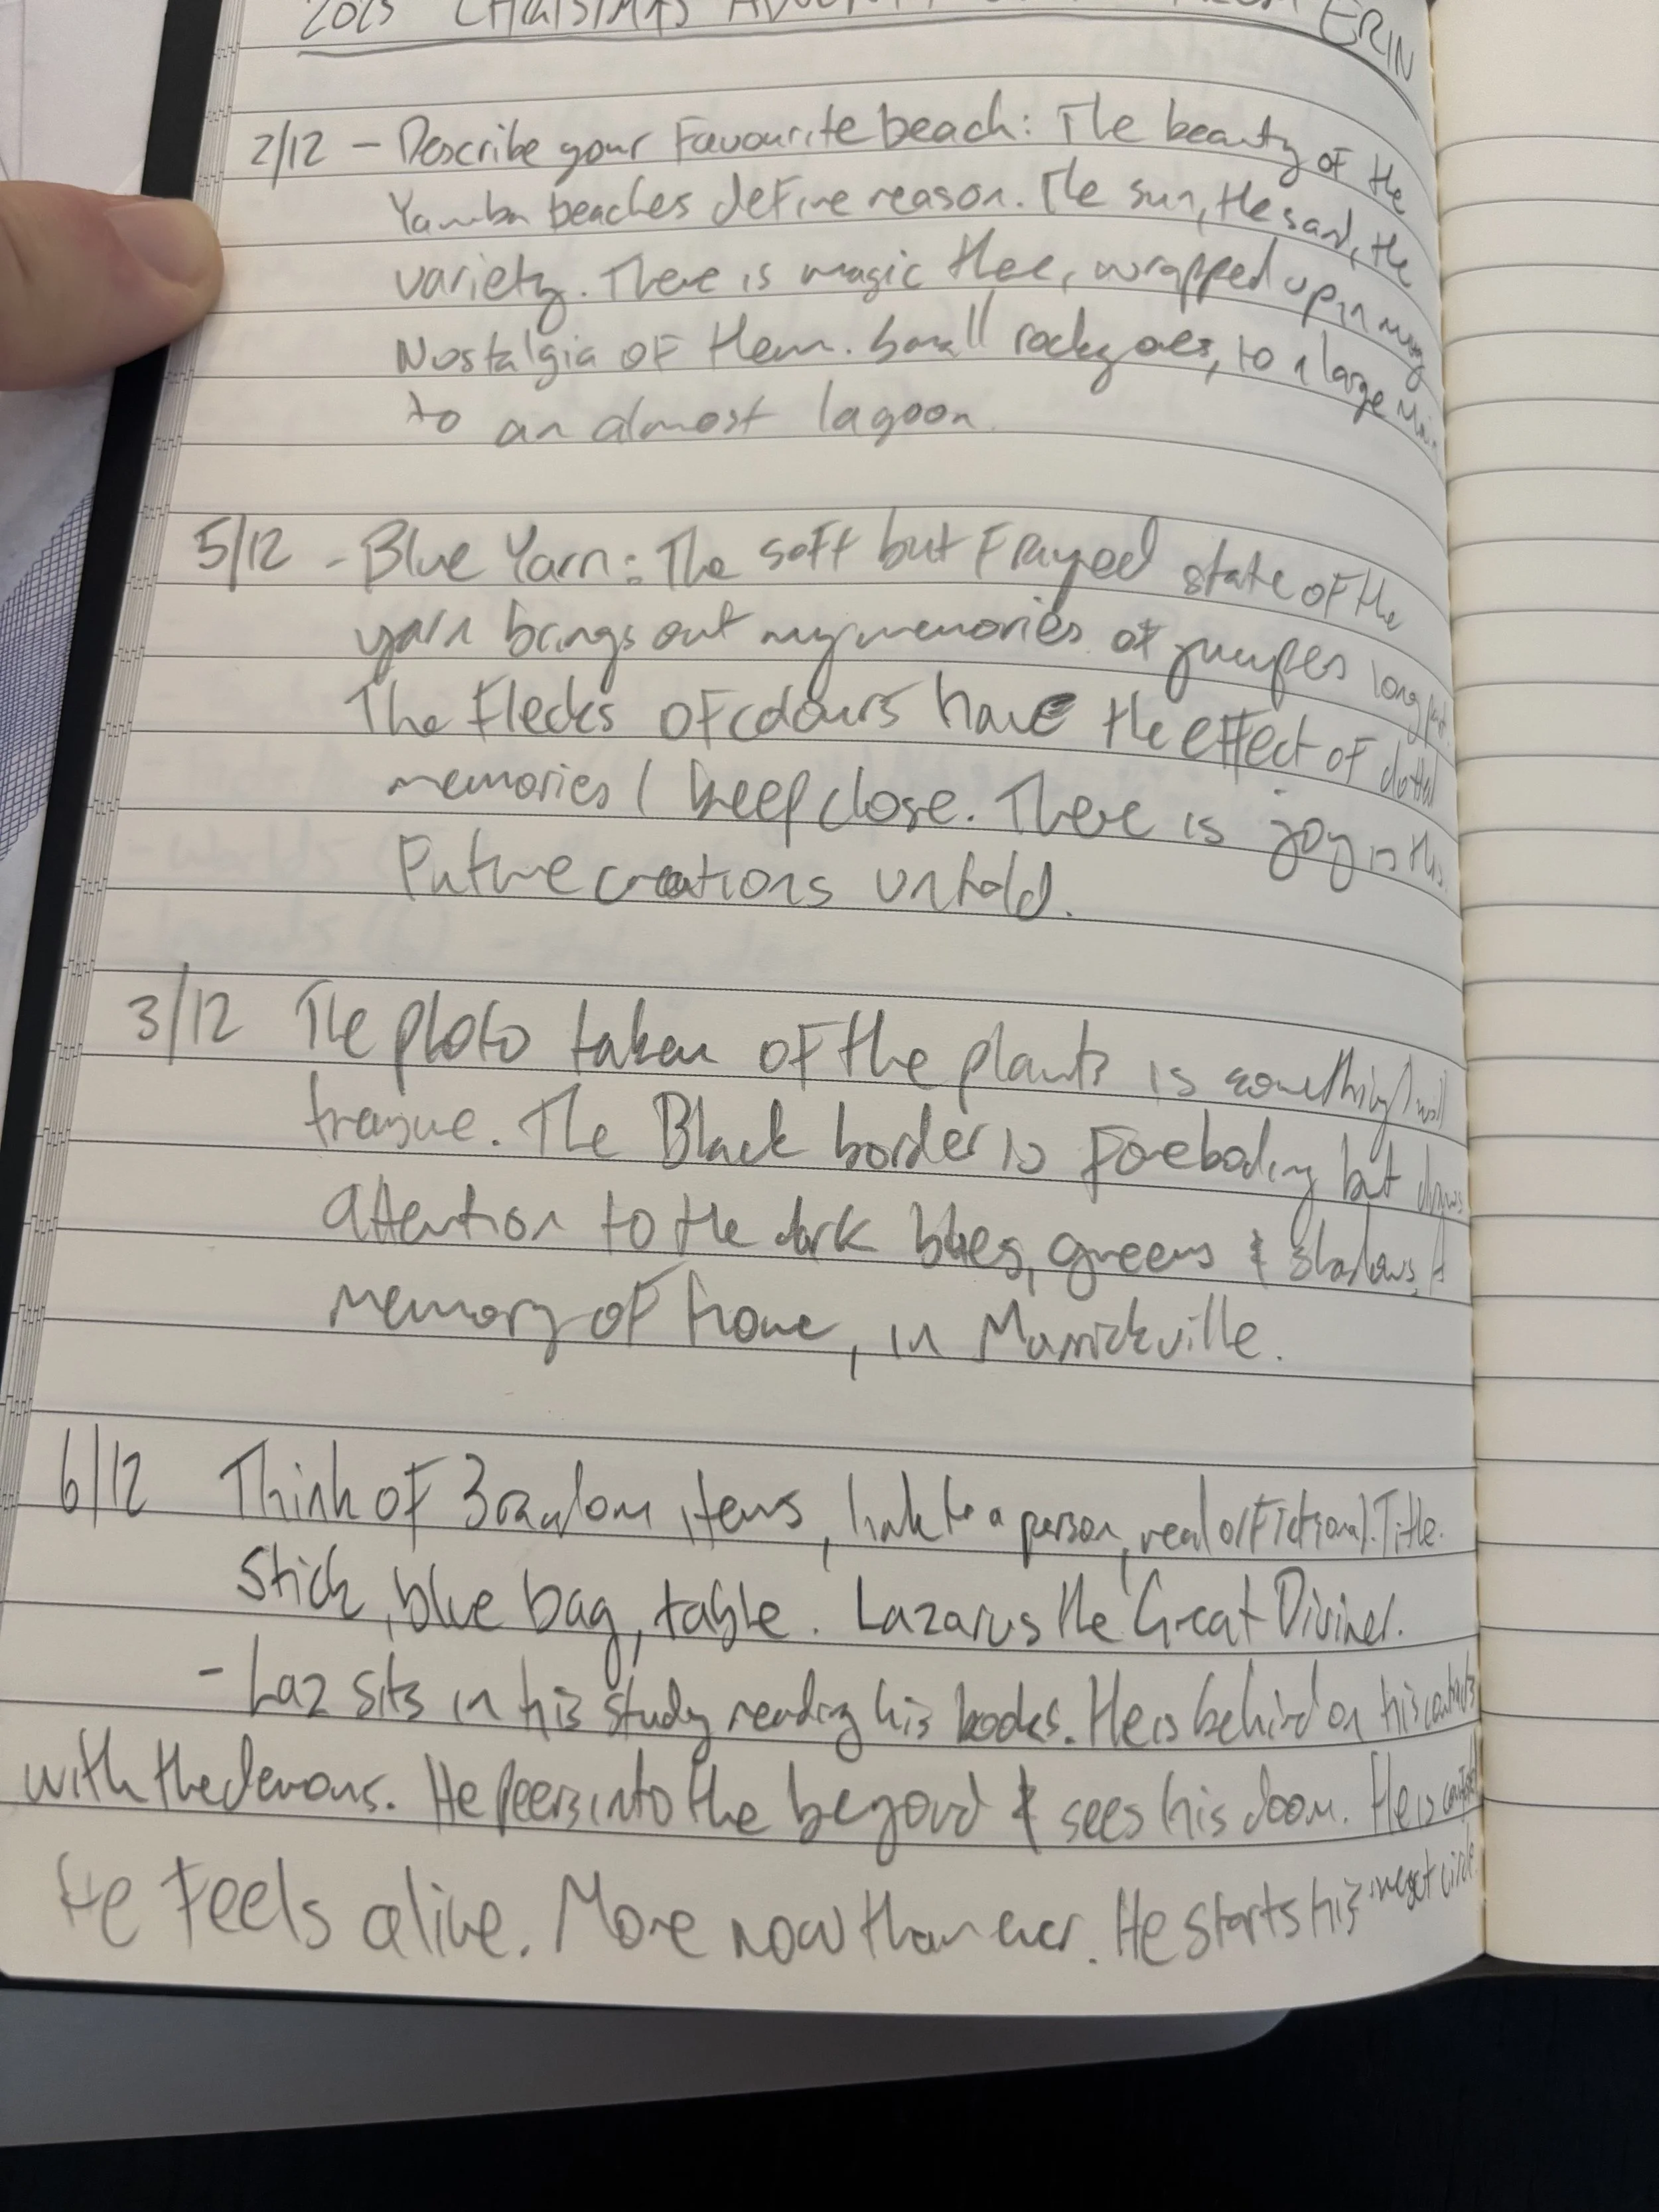 2025 CHRISTMAS ADVENT ERIN
2/12 - Describe your Favourite beach: The beauty of the
Yamba beaches define reason. The sun, the sand, the
variety. There is magic there, wrapped up in my
Nostalgia of them. Small rocky ones, to a large Main
to an almost lagoon.
5/12 - Blue Yarn: The soft but Frayed state of the
yarn brings out my memories of jumpers long
The Flecks of colours have the effect of dotted
memories I keep close. There is joy in this
Future creations untold.
3/12 The photo taken of the plants is something I will
treasure. The Black border is Foreboding but draws
attention to the dark blues, greens & shadows, A
memory of home, in Marrickville.
6/12 Think of 3 random items, link to a person, real or Fictional. Title.
Stick, blue bag, table. Lazarus the Great Diviner.
- Laz sits in his study reading his books. He is behind on his contracts
with the demons. He peers into the beyond & sees his doom. He is
He Feels alive. More now than ever. He starts his